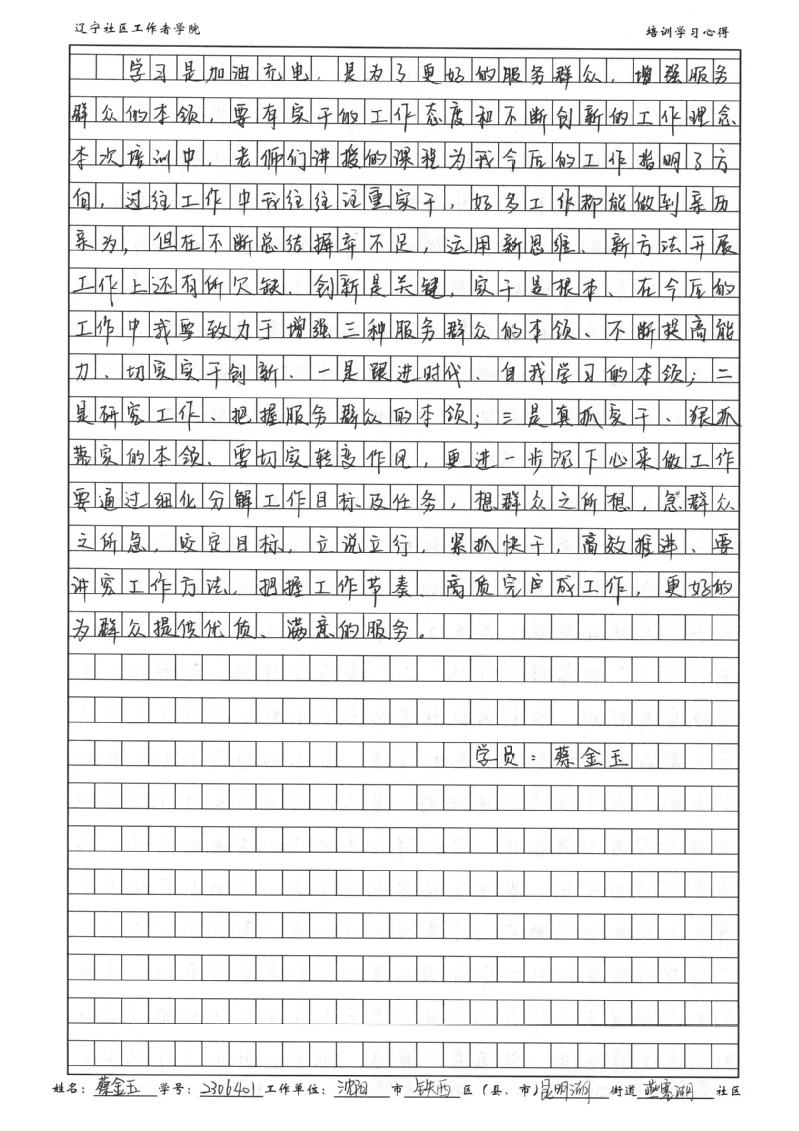 辽宁社区工作者学院 培训学习心得
学习是加油充电，是为了更好的服务群众，增强服务
群众的本领，要有实干的工作态度和不断创新的工作理念
本次培训中，老师们讲授的课程为我今后的工作指明了方
向，过往工作中我往往注重实干，好多工作都能做到亲历
亲为，但在不断总结摒弃不足，运用新思维、新方法开展
工作上还有所欠缺、创新是关键，实干是根本、在今后的
工作中我要致力于增强三种服务群众的本领、不断提高能
力、切实实干创新、一是跟进时代、自我学习的本领；二
是研究工作、把握服务群众的本领；三是真抓实干、狠抓
落实的本领、要切实转变作风，更进一步沉下心来做工作
要通过细化分解工作目标及任务，想群众之所想，急群众
之所急，咬定目标，立说立行，紧抓快干，高效推进、要
讲究工作方法，把握工作节奏、高质完成工作，更好的
为群众提供优质、满意的服务。
学员：蔡金玉
姓名：蔡金玉 学号：2306401 工作单位：沈阳 市 铁西 区（县、市）昆明湖 街道 燕塞湖 社区